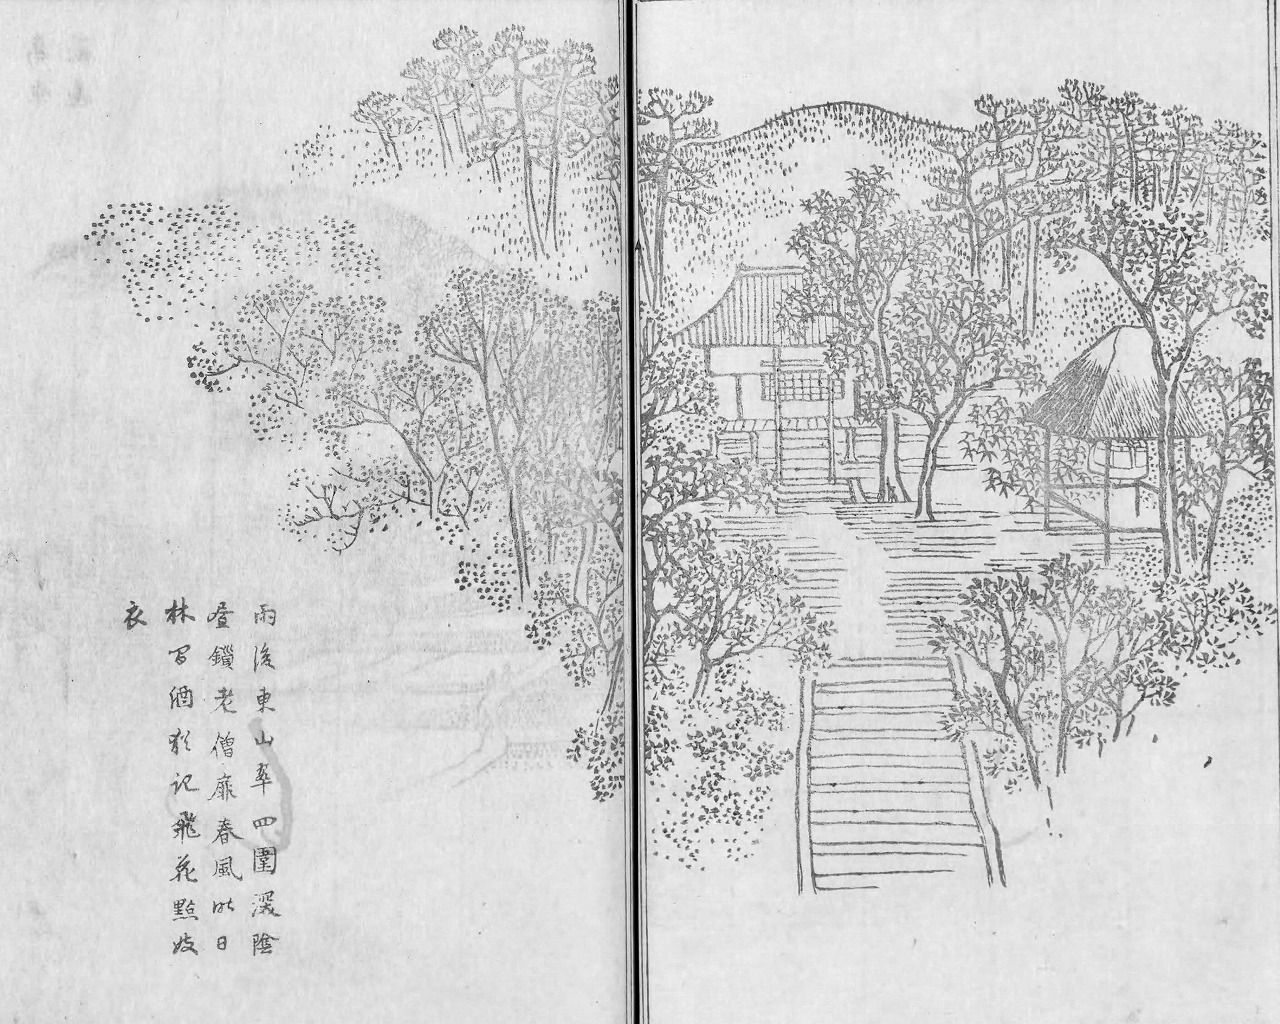 雨後東山翠四圍深陰
晝鎖老僧扉春風昨日
林間酒猶記飛花點妓
衣